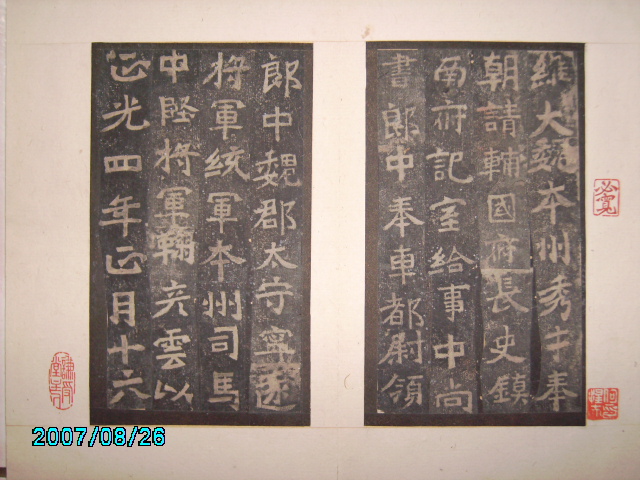 維大魏本州秀才奉
朝請輔國府長史鎮
南府記室給事中尚
書郎中奉車都尉領
郎中魏郡太守寧遠
將軍統軍本州司馬
中堅將軍鞠彥雲以
正光四年正月十六
2007/08/26